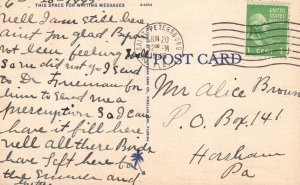 THIS SPACE FOR WRITING MESSAGES
Well I am still here
am glad Bups
not been feeling well
so am did not go I send
to Dr. Freeman for
him to send me a
prescription so I can
have it fill here
well all there Birds
have left here for
the Summer and
ST. PETERSBURG
JUN 20
PM
POST CARD
UNITED STATES
1 CENT
Mr Alice Brown
P.O. Box, 141
Horsham
Pa